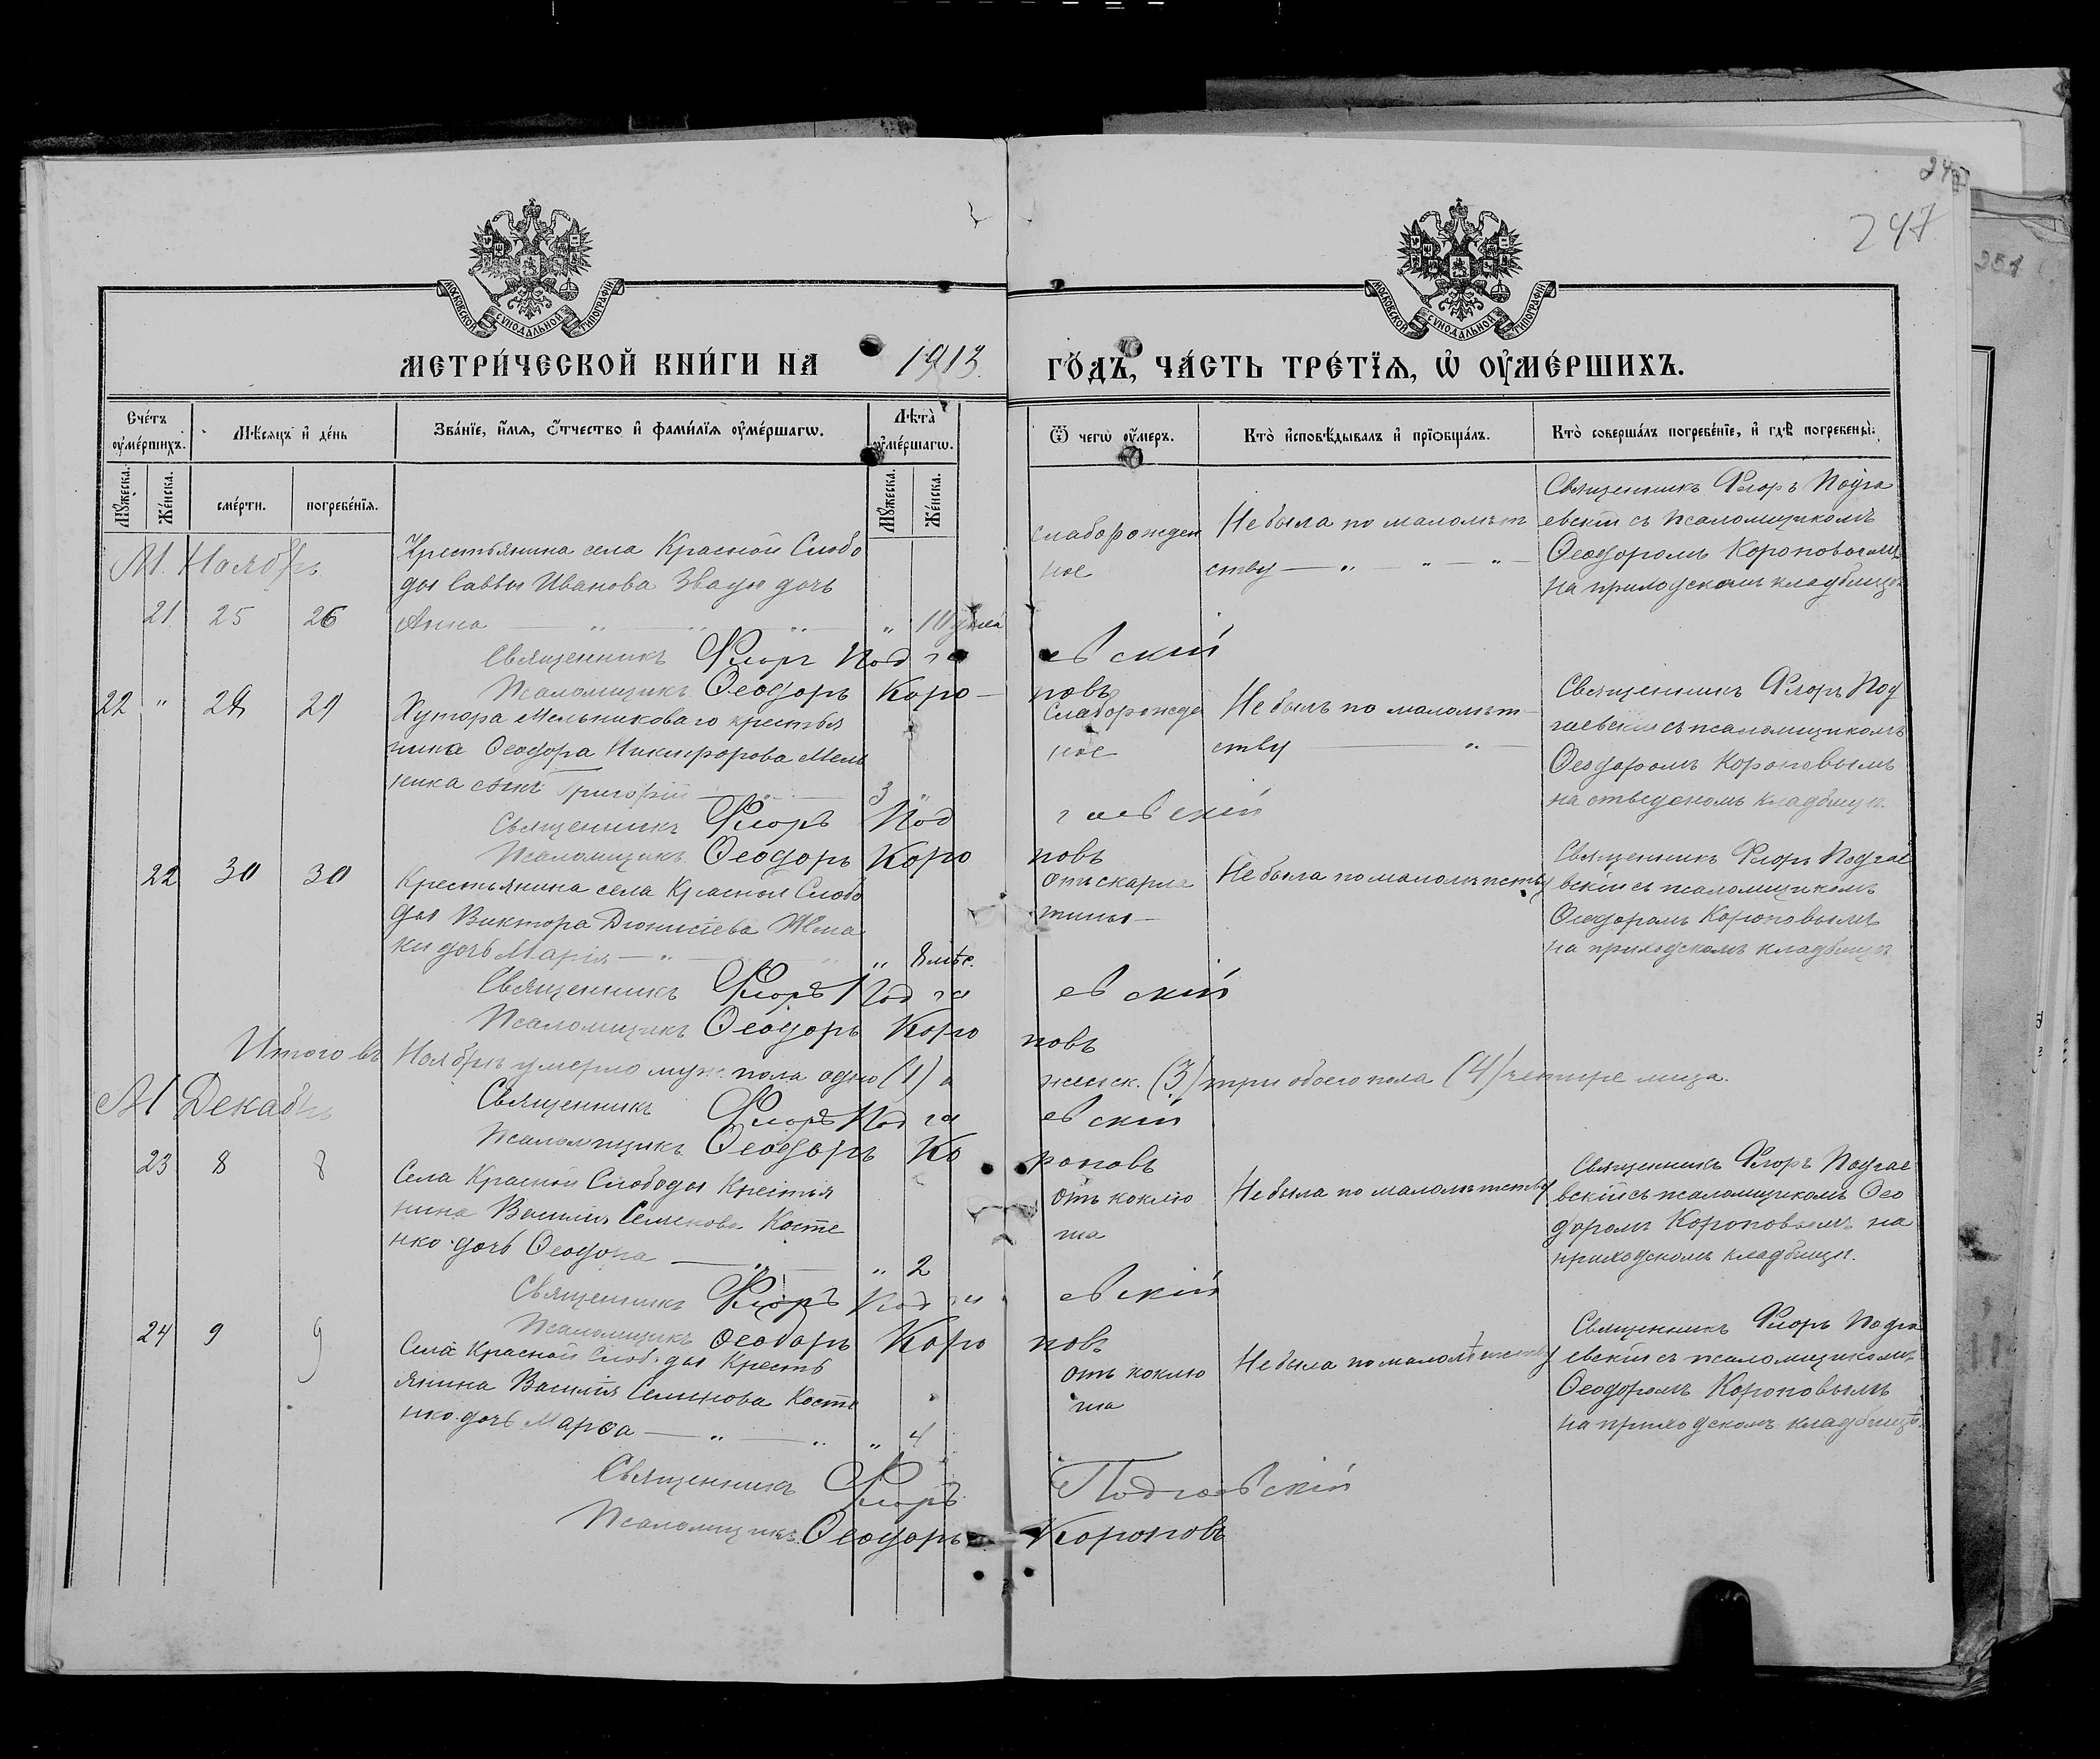 247
247
251
МОСКОВСКОЙ СѴНОДАЛЬНОЙ ТИПОГРАФІИ
МОСКОВСКОЙ СѴНОДАЛЬНОЙ ТИПОГРАФІИ
МЕТРИ́ЧЕСКОЙ КНИ́ГИ НА 1913 ГО́ДЪ, ЧА́СТЬ ТРЕ́ТЇѦ, Ѡ҆ ОУ҆МЕ́РШИХЪ.
Сче́тъ оу҆ме́ршихъ.
Мѣ́сяцъ и҆ де́нь
Зва́нїе, и҆́мѧ, ѻ҆́тчество и҆ фами́лїѧ оу҆ме́ршагѡ.
Лѣта̀ оу҆ме́ршагѡ.
Ѿ чегѡ̀ оу҆́меръ.
Кто̀ и҆сповѣ́дывалъ и҆ прїѻбща́лъ.
Кто̀ соверша́лъ погребе́нїе, и҆ гдѣ̀ погребены̀.
Мꙋ́жеска.
Же́нска.
сме́рти.
погребе́нїѧ.
Мꙋ́жеска.
Же́нска.
М. Ноябрь
21 25 26
Крестьянина села Красной Слобо
ды Саввы Иванова дочь
Анна — „ — „ — „
слаборожден
ное
Не была по малолѣт
ству — „ — „ — „ —
Священникъ Флоръ Подга
евскій съ псаломщикомъ
Ѳеодоромъ Короповымъ
на приходскомъ кладбищѣ
Священникъ Флоръ Подгаевскій
Псаломщикъ Ѳеодоръ Короповъ
22 „ 28 29
Хутора Мельниковаго крестья
нина Ѳеодора Никифорова Мель
ника сынъ Григорій — „ — 3 „
Слаборожде
ное
Не былъ по малолѣт
ству — „ —
Священникъ Флоръ Под
гаевскій съ псаломщикомъ
Ѳеодоромъ Короповымъ
на отведеномъ кладбищѣ.
Священникъ Флоръ Подгаевскій
Псаломщикъ Ѳеодоръ Короповъ
22 30 30
Крестьянина села Красной Слобо
ды Виктора Діонисіева Жма
ки дочь Марія — „ — „ 8 мѣс.
отъ скарла
тины —
Не была по малолѣтству
Священникъ Флоръ Подгае
вскій съ псаломщикомъ
Ѳеодоромъ Короповымъ
на приходскомъ кладбищѣ
Священникъ Флоръ Подгаевскій
Псаломщикъ Ѳеодоръ Короповъ
Итого въ Ноябрѣ умерло муж. пола одно (1) а женск. (3) три обоего пола (4) четыре лица.
Священникъ Флоръ Подгаевскій
Псаломщикъ Ѳеодоръ Короповъ
М. Декабрь
23 8 8
Села Красной Слободы Крестья
нина Василія Семенова Косте
нко дочь Ѳеодора — „ — „ 2
отъ коклю
ша
Не была по малолѣтству
Священникъ Флоръ Подгае
вскій съ псаломщикомъ Ѳео
доромъ Короповымъ на
приходскомъ кладбищѣ.
Священникъ Флоръ Подгаевскій
Псаломщикъ Ѳеодоръ Короповъ
24 9 9
Села Красной Слободы Кресть
янина Василія Семенова Косте
нко дочь Марѳа — „ — „ „ 4
отъ коклю
ша
Не была по малолѣтству
Священникъ Флоръ Подга
евскій съ псаломщикомъ
Ѳеодоромъ Короповымъ
на приходскомъ кладбищѣ.
Священникъ Флоръ Подгаевскій
Псаломщикъ Ѳеодоръ Короповъ